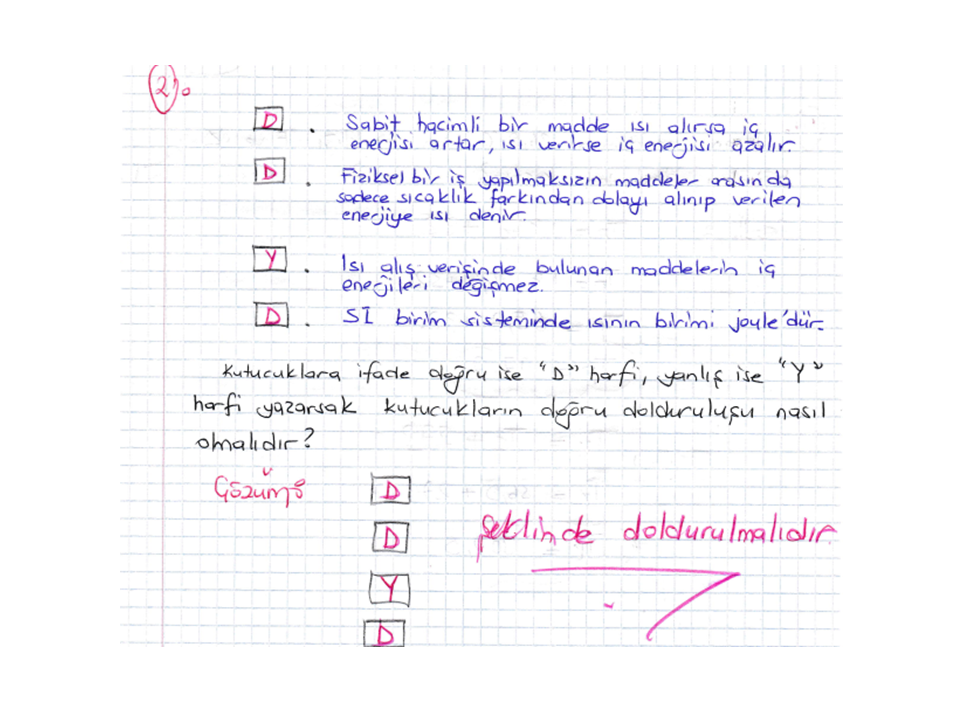 2).
D . Sabit hacimli bir madde ısı alırsa iç
enerjisi artar, ısı verirse iç enerjisi azalır.
D . Fiziksel bir iş yapılmaksızın maddeler arasında
sadece sıcaklık farkından dolayı alınıp verilen
enerjiye ısı denir.
Y . Isı alış verişinde bulunan maddelerin iç
enerjileri değişmez.
D . SI birim sisteminde ısının birimi joule'dür.
Kutucuklara ifade doğru ise "D" harfi, yanlış ise "Y"
harfi yazarsak kutucukların doğru dolduruluşu nasıl
olmalıdır?
Çözüm:
D
D şeklinde doldurulmalıdır.
Y
D